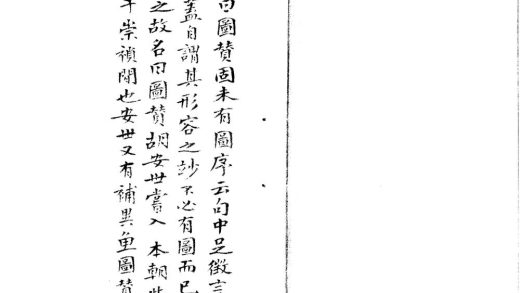 曰圖贊固未有圖序云句中足徵言
蓋自謂其形容之妙不必有圖而已
之故名曰圖贊胡安世嘗入本朝此
崇禎間也安世又有補異魚圖贊